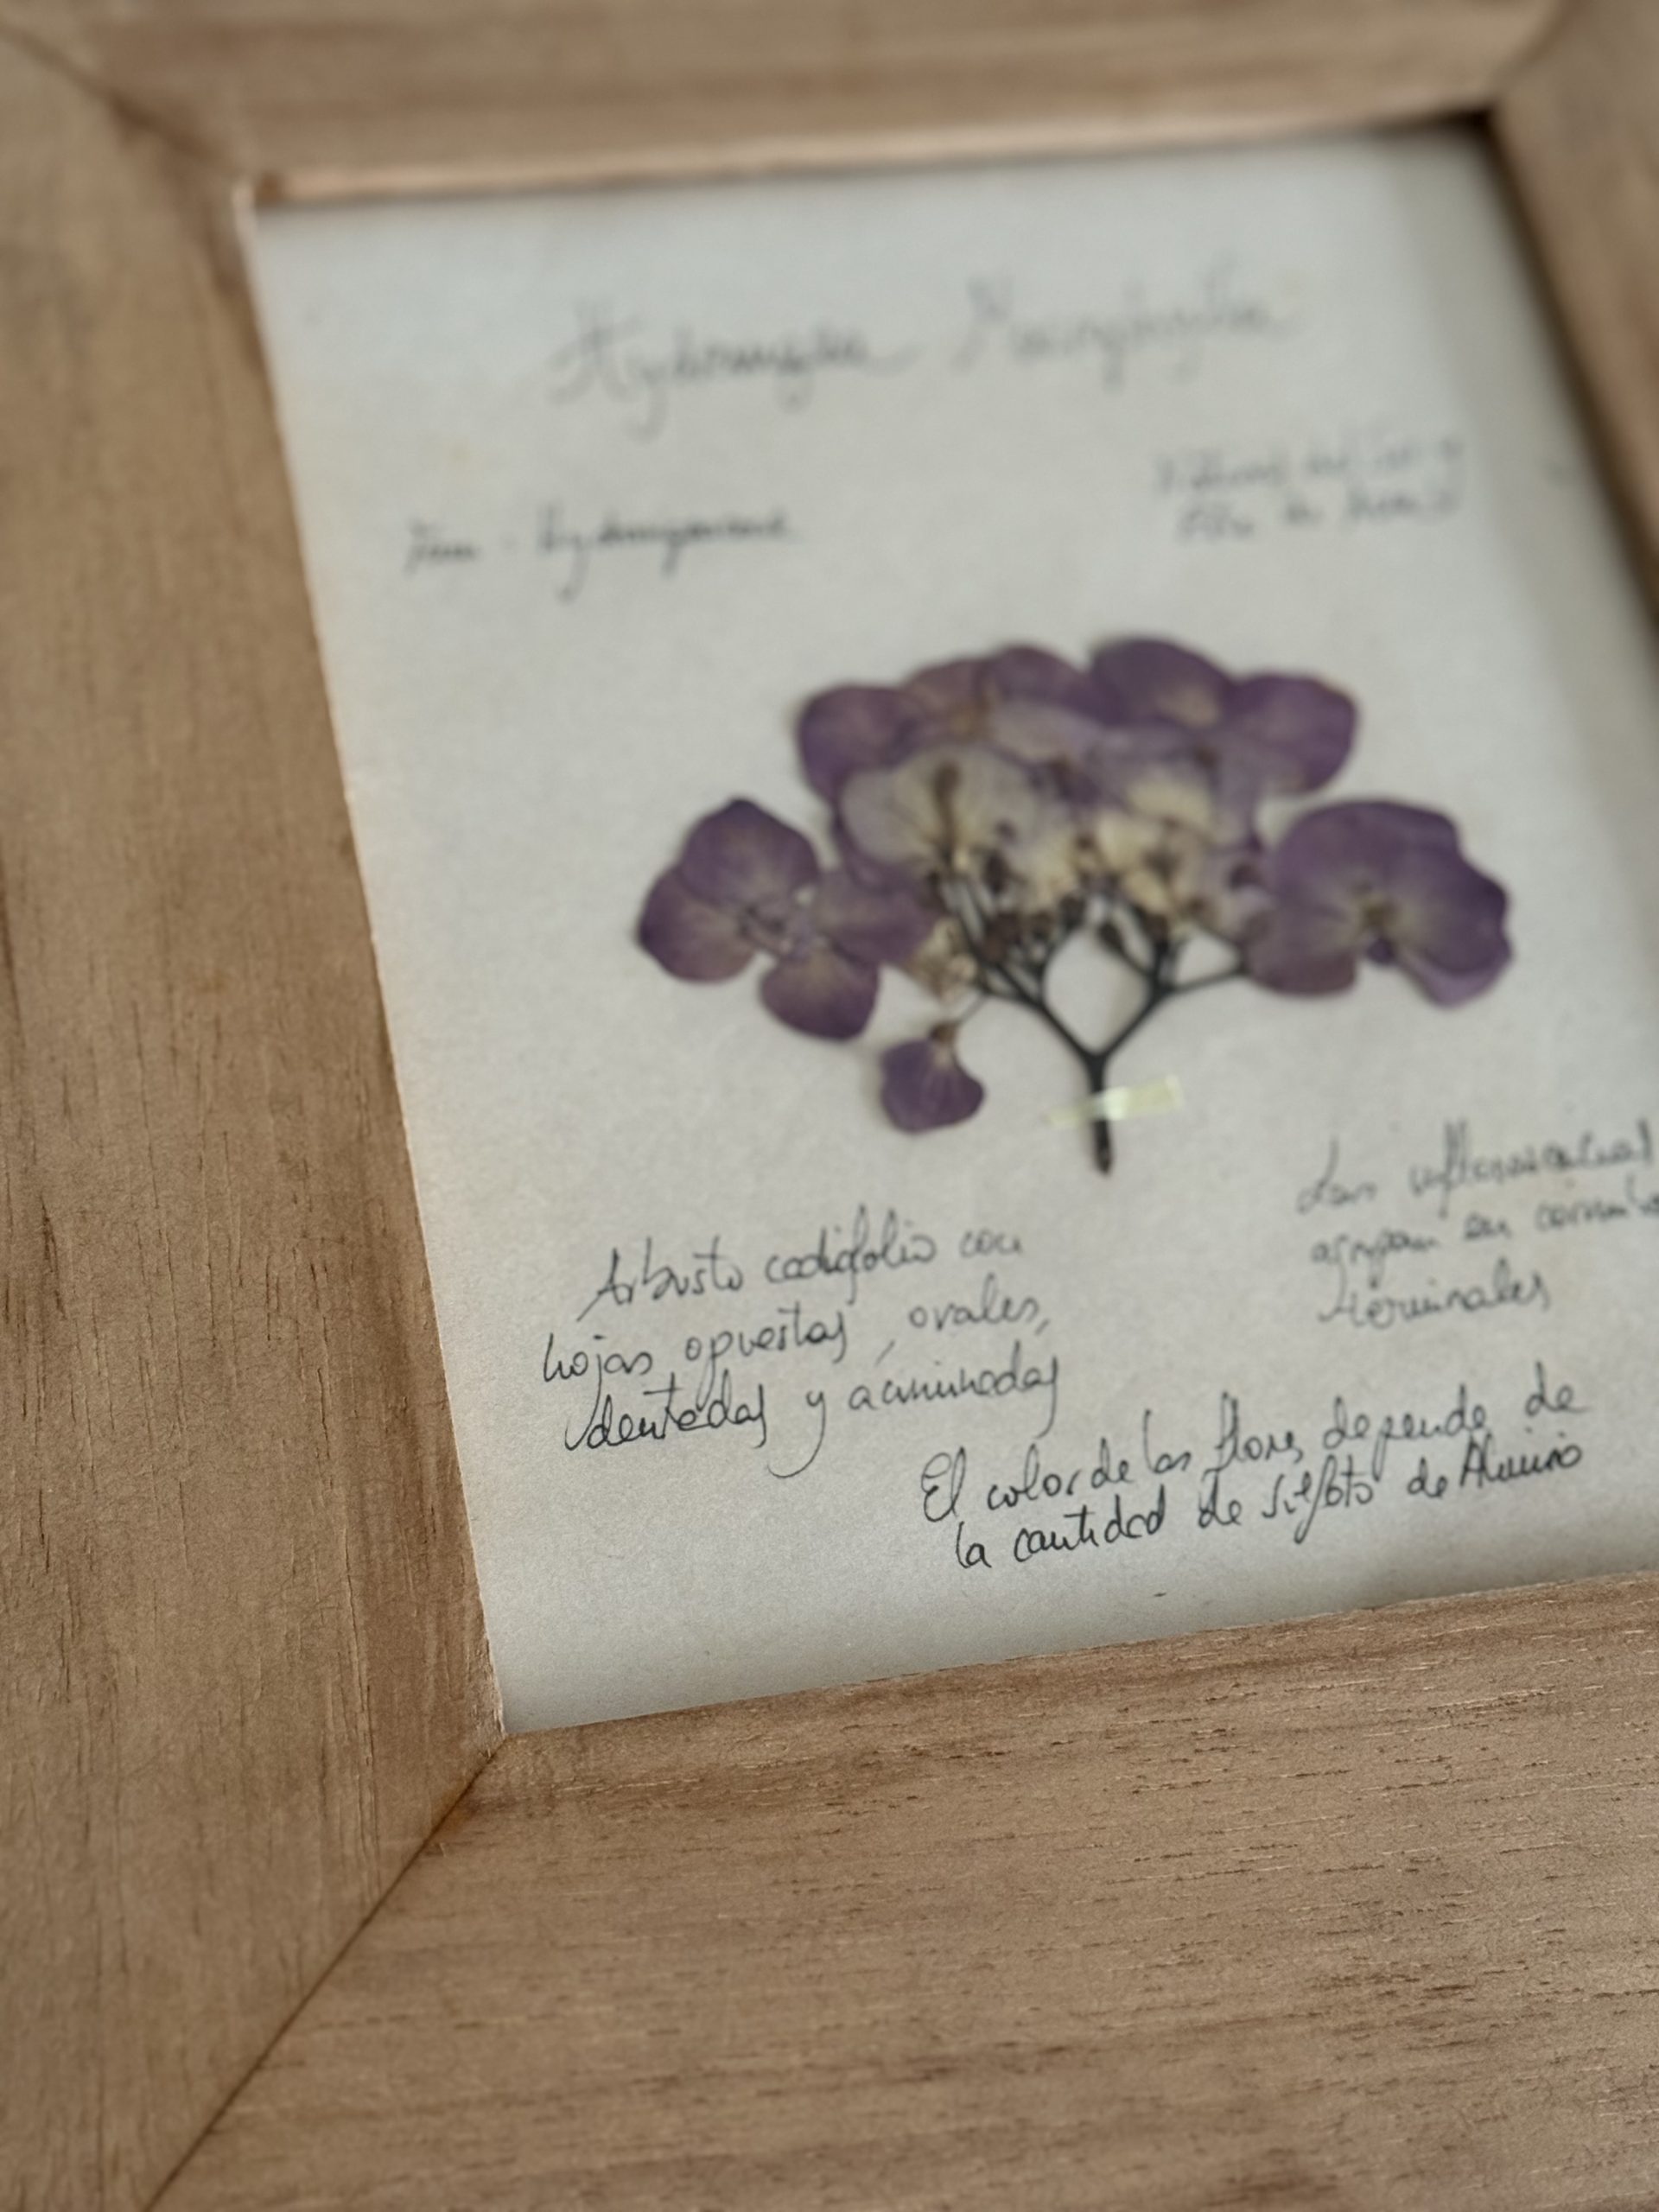 Hydrangea Macrophylla
Fam - Hydrangeaceae
Arbusto cadifolio con
hojas opuestas, ovales,
dentadas y acuminadas
Las inflorescencias
agrupan en corimbos
terminales
El color de las flores depende de
la cantidad de sulfato de Aluminio